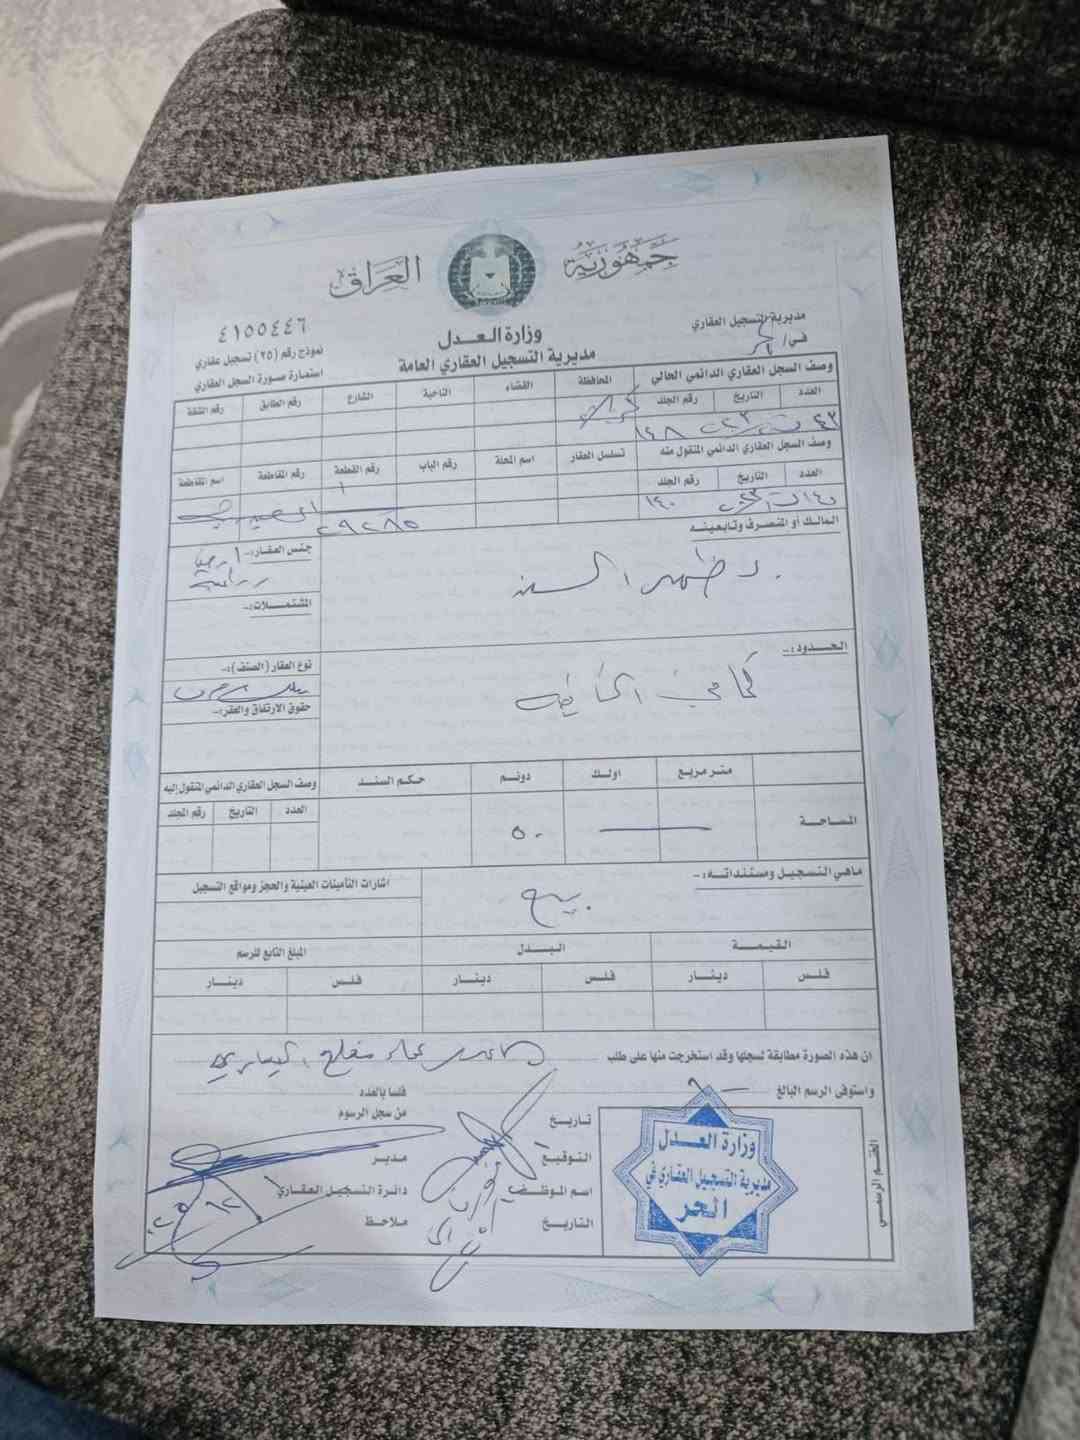 جمهورية العراق
وزارة العدل
مديرية التسجيل العقاري العامة
مديرية التسجيل العقاري
في / الحر
٤١٥٥٤٤٦
نموذج رقم (٢٥) تسجيل عقاري
استمارة صورة السجل العقاري
وصف السجل العقاري الدائمي الحالي
العدد التاريخ رقم الجلد
المحافظة القضاء الناحية الشارع رقم الطابق رقم الشقة
كربلاء
١٤٨
وصف السجل العقاري الدائمي المنقول منه
العدد التاريخ رقم الجلد
تسلسل العقار اسم المحلة رقم الباب رقم القطعة رقم المقاطعة اسم المقاطعة
١٤٠
المالك أو المتصرف وتابعيته
د ظهر السند
جنس العقار:- ارض
زراعية
المشتملات:-
الحدود:-
كما في الخارطه
نوع العقار (الصنف):-
ملك صرف
حقوق الارتفاق والعقر:-
متر مربع اولك دونم حكم السند
وصف السجل العقاري الدائمي المنقول إليه
العدد التاريخ رقم المجلد
المساحة
٥٠
ماهي التسجيل ومستنداته:-
بيع
اشارات التأمينات العينية والحجز ومواقع التسجيل
القيمة البدل المبلغ التابع للرسم
فلس دينار فلس دينار فلس دينار
ان هذه الصورة مطابقة لسجلها وقد استخرجت منها على طلب
واستوفى الرسم البالغ
فلسا بالعدد
تاريخ
من سجل الرسوم
التوقيع
مدير
اسم الموظف
دائرة التسجيل العقاري
التاريخ
ملاحظ
الختم الرسمي
وزارة العدل
مديرية التسجيل العقاري في
الحر